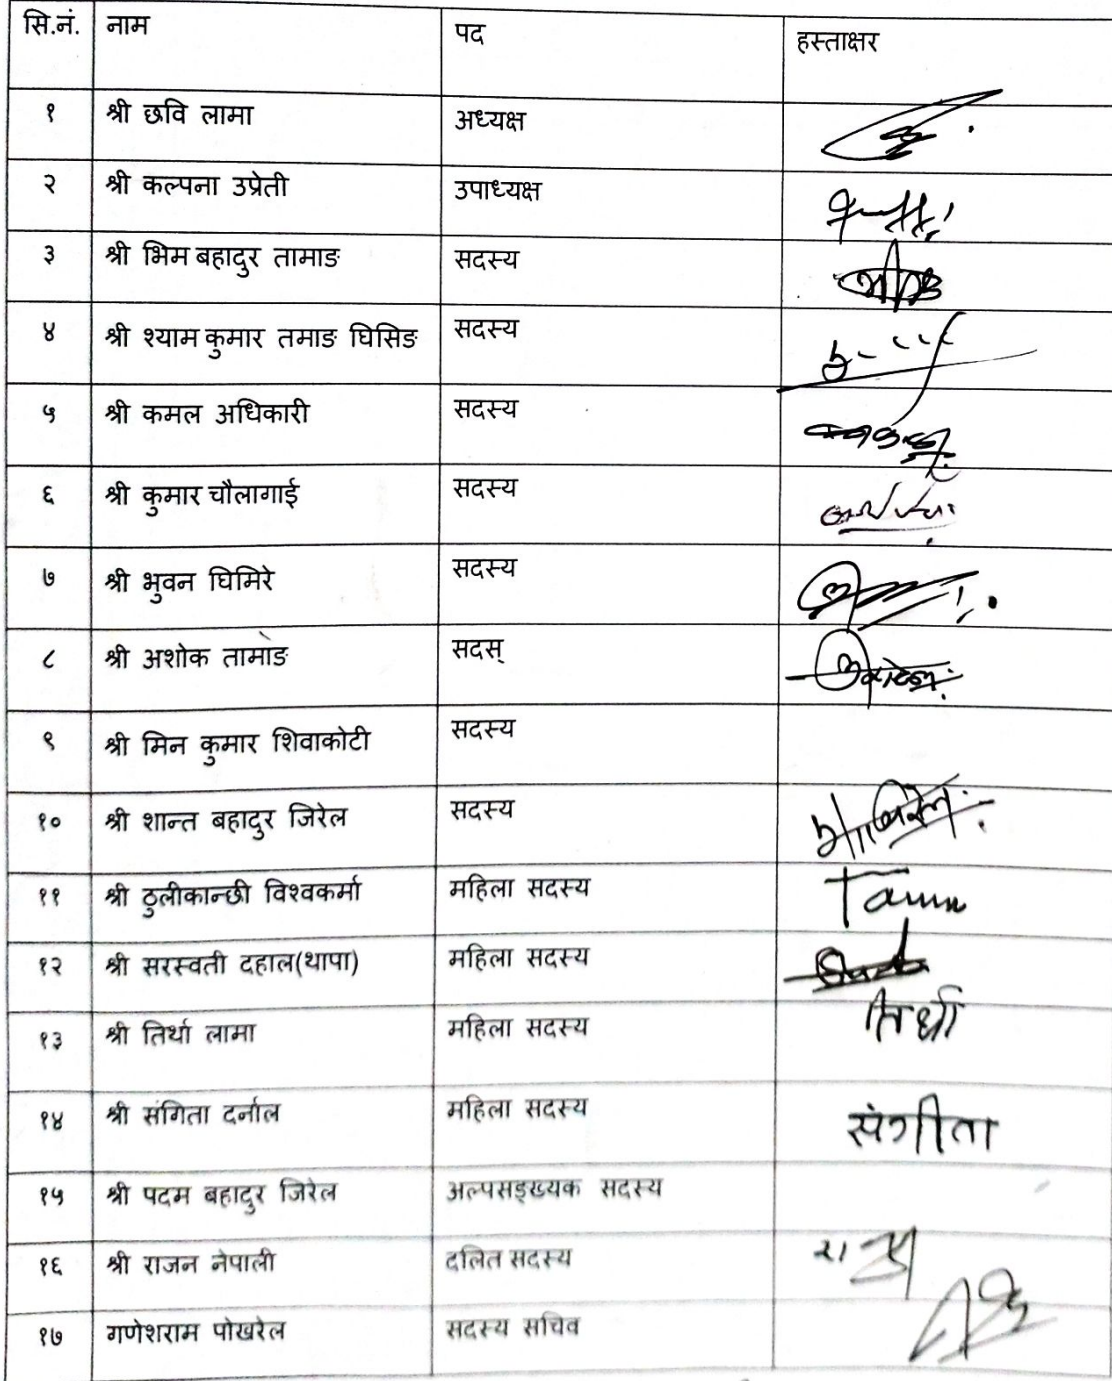 सि.नं. नाम पद हस्ताक्षर
१ श्री छवि लामा अध्यक्ष
२ श्री कल्पना उप्रेती उपाध्यक्ष
३ श्री भिम बहादुर तामाङ सदस्य
४ श्री श्याम कुमार तमाङ घिसिङ सदस्य
५ श्री कमल अधिकारी सदस्य
६ श्री कुमार चौलागाई सदस्य
७ श्री भुवन घिमिरे सदस्य
८ श्री अशोक तामाङ सदस्
९ श्री मिन कुमार शिवाकोटी सदस्य
१० श्री शान्त बहादुर जिरेल सदस्य
११ श्री ठुलीकान्छी विश्वकर्मा महिला सदस्य
१२ श्री सरस्वती दहाल(थापा) महिला सदस्य
१३ श्री तिर्था लामा महिला सदस्य तिर्था
१४ श्री संगिता दर्नाल महिला सदस्य संगीता
१५ श्री पदम बहादुर जिरेल अल्पसङ्ख्यक सदस्य
१६ श्री राजन नेपाली दलित सदस्य
१७ गणेशराम पोखरेल सदस्य सचिव